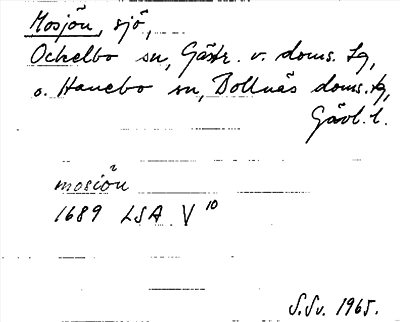 Mosjön, sjö,
Ockelbo sn, Gästr. v. doms. tg,
o. Hanebo sn, Bollnäs doms. tg,
Gävl. l.
mosiön
1689 LSA V 10
S.Sv. 1965.